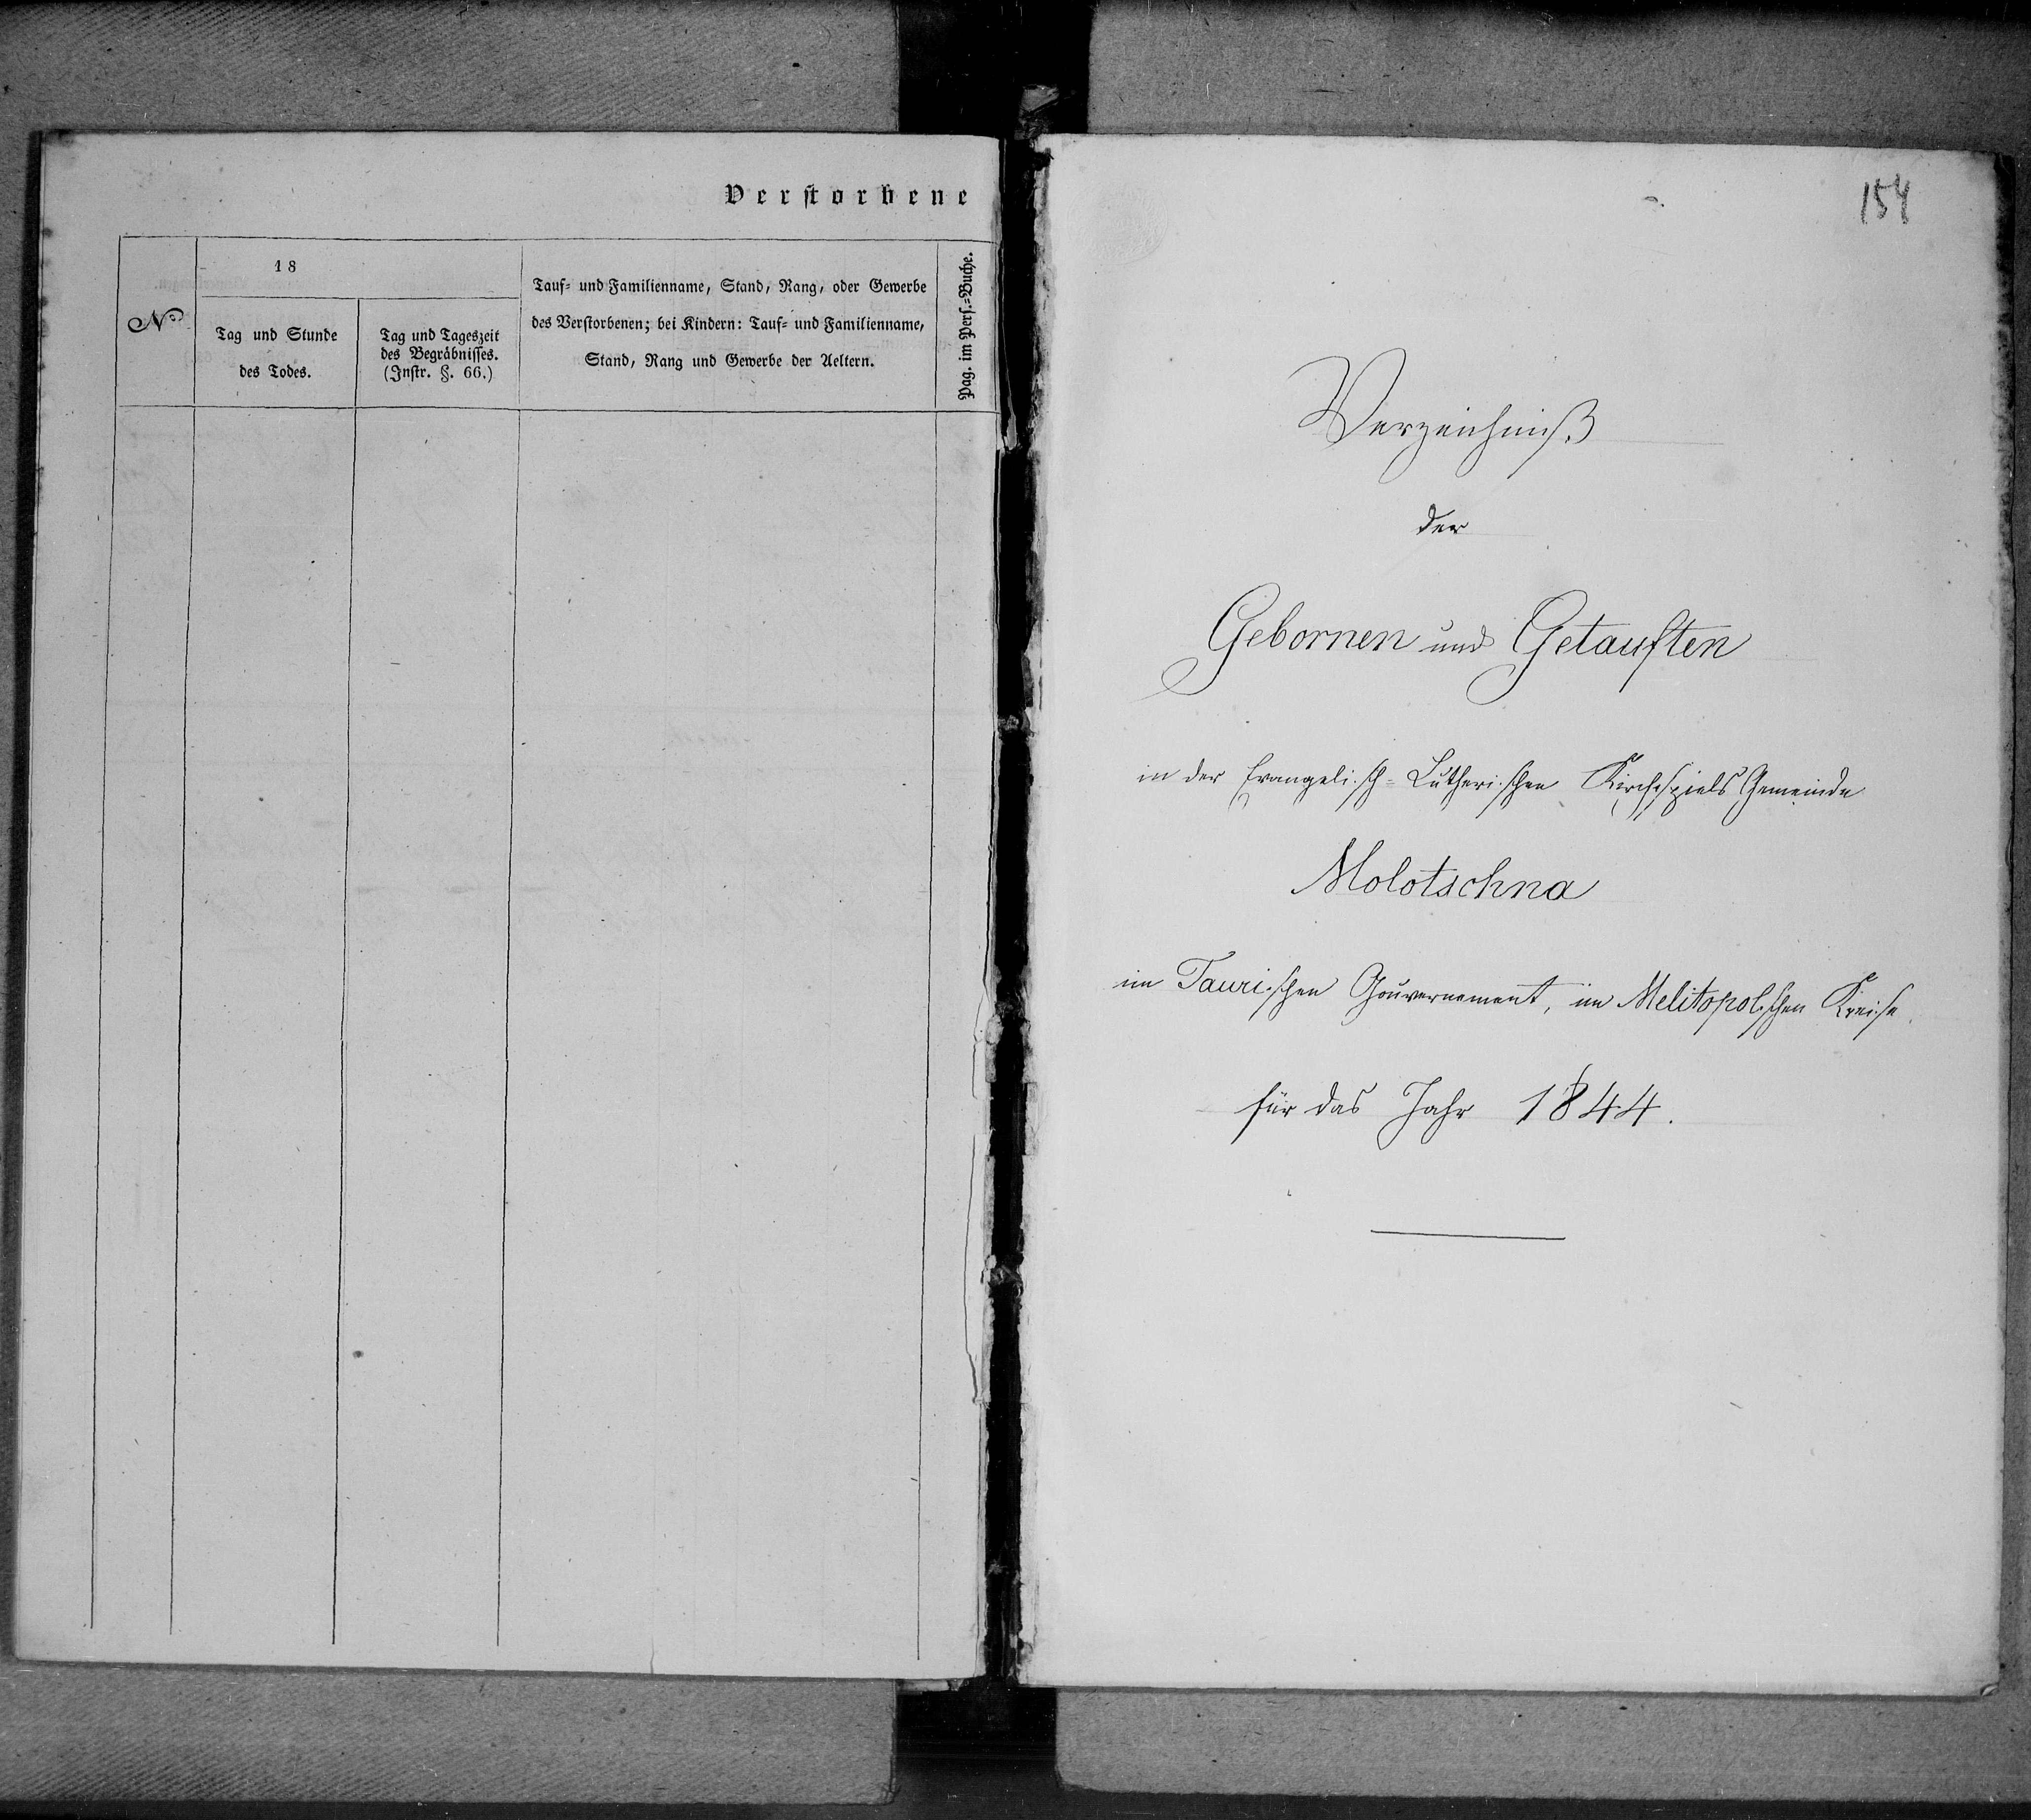 Verstorbene
No
18
Tag und Stunde
des Todes.
Tag und Tageszeit
des Begräbnisses.
(Instr. §. 66.)
Tauf- und Familienname, Stand, Rang, oder Gewerbe
des Verstorbenen; bei Kindern: Tauf- und Familienname,
Stand, Rang und Gewerbe der Aeltern.
Pag. im Pers.-Buche.
154
Verzeichniß
der
Gebornen und Getauften
in der Evangelisch-Lutherischen Kirchspiels Gemeinde
Molotschna
im Taurischen Gouvernement, im Melitopolschen Kreise.
für das Jahr 1844.